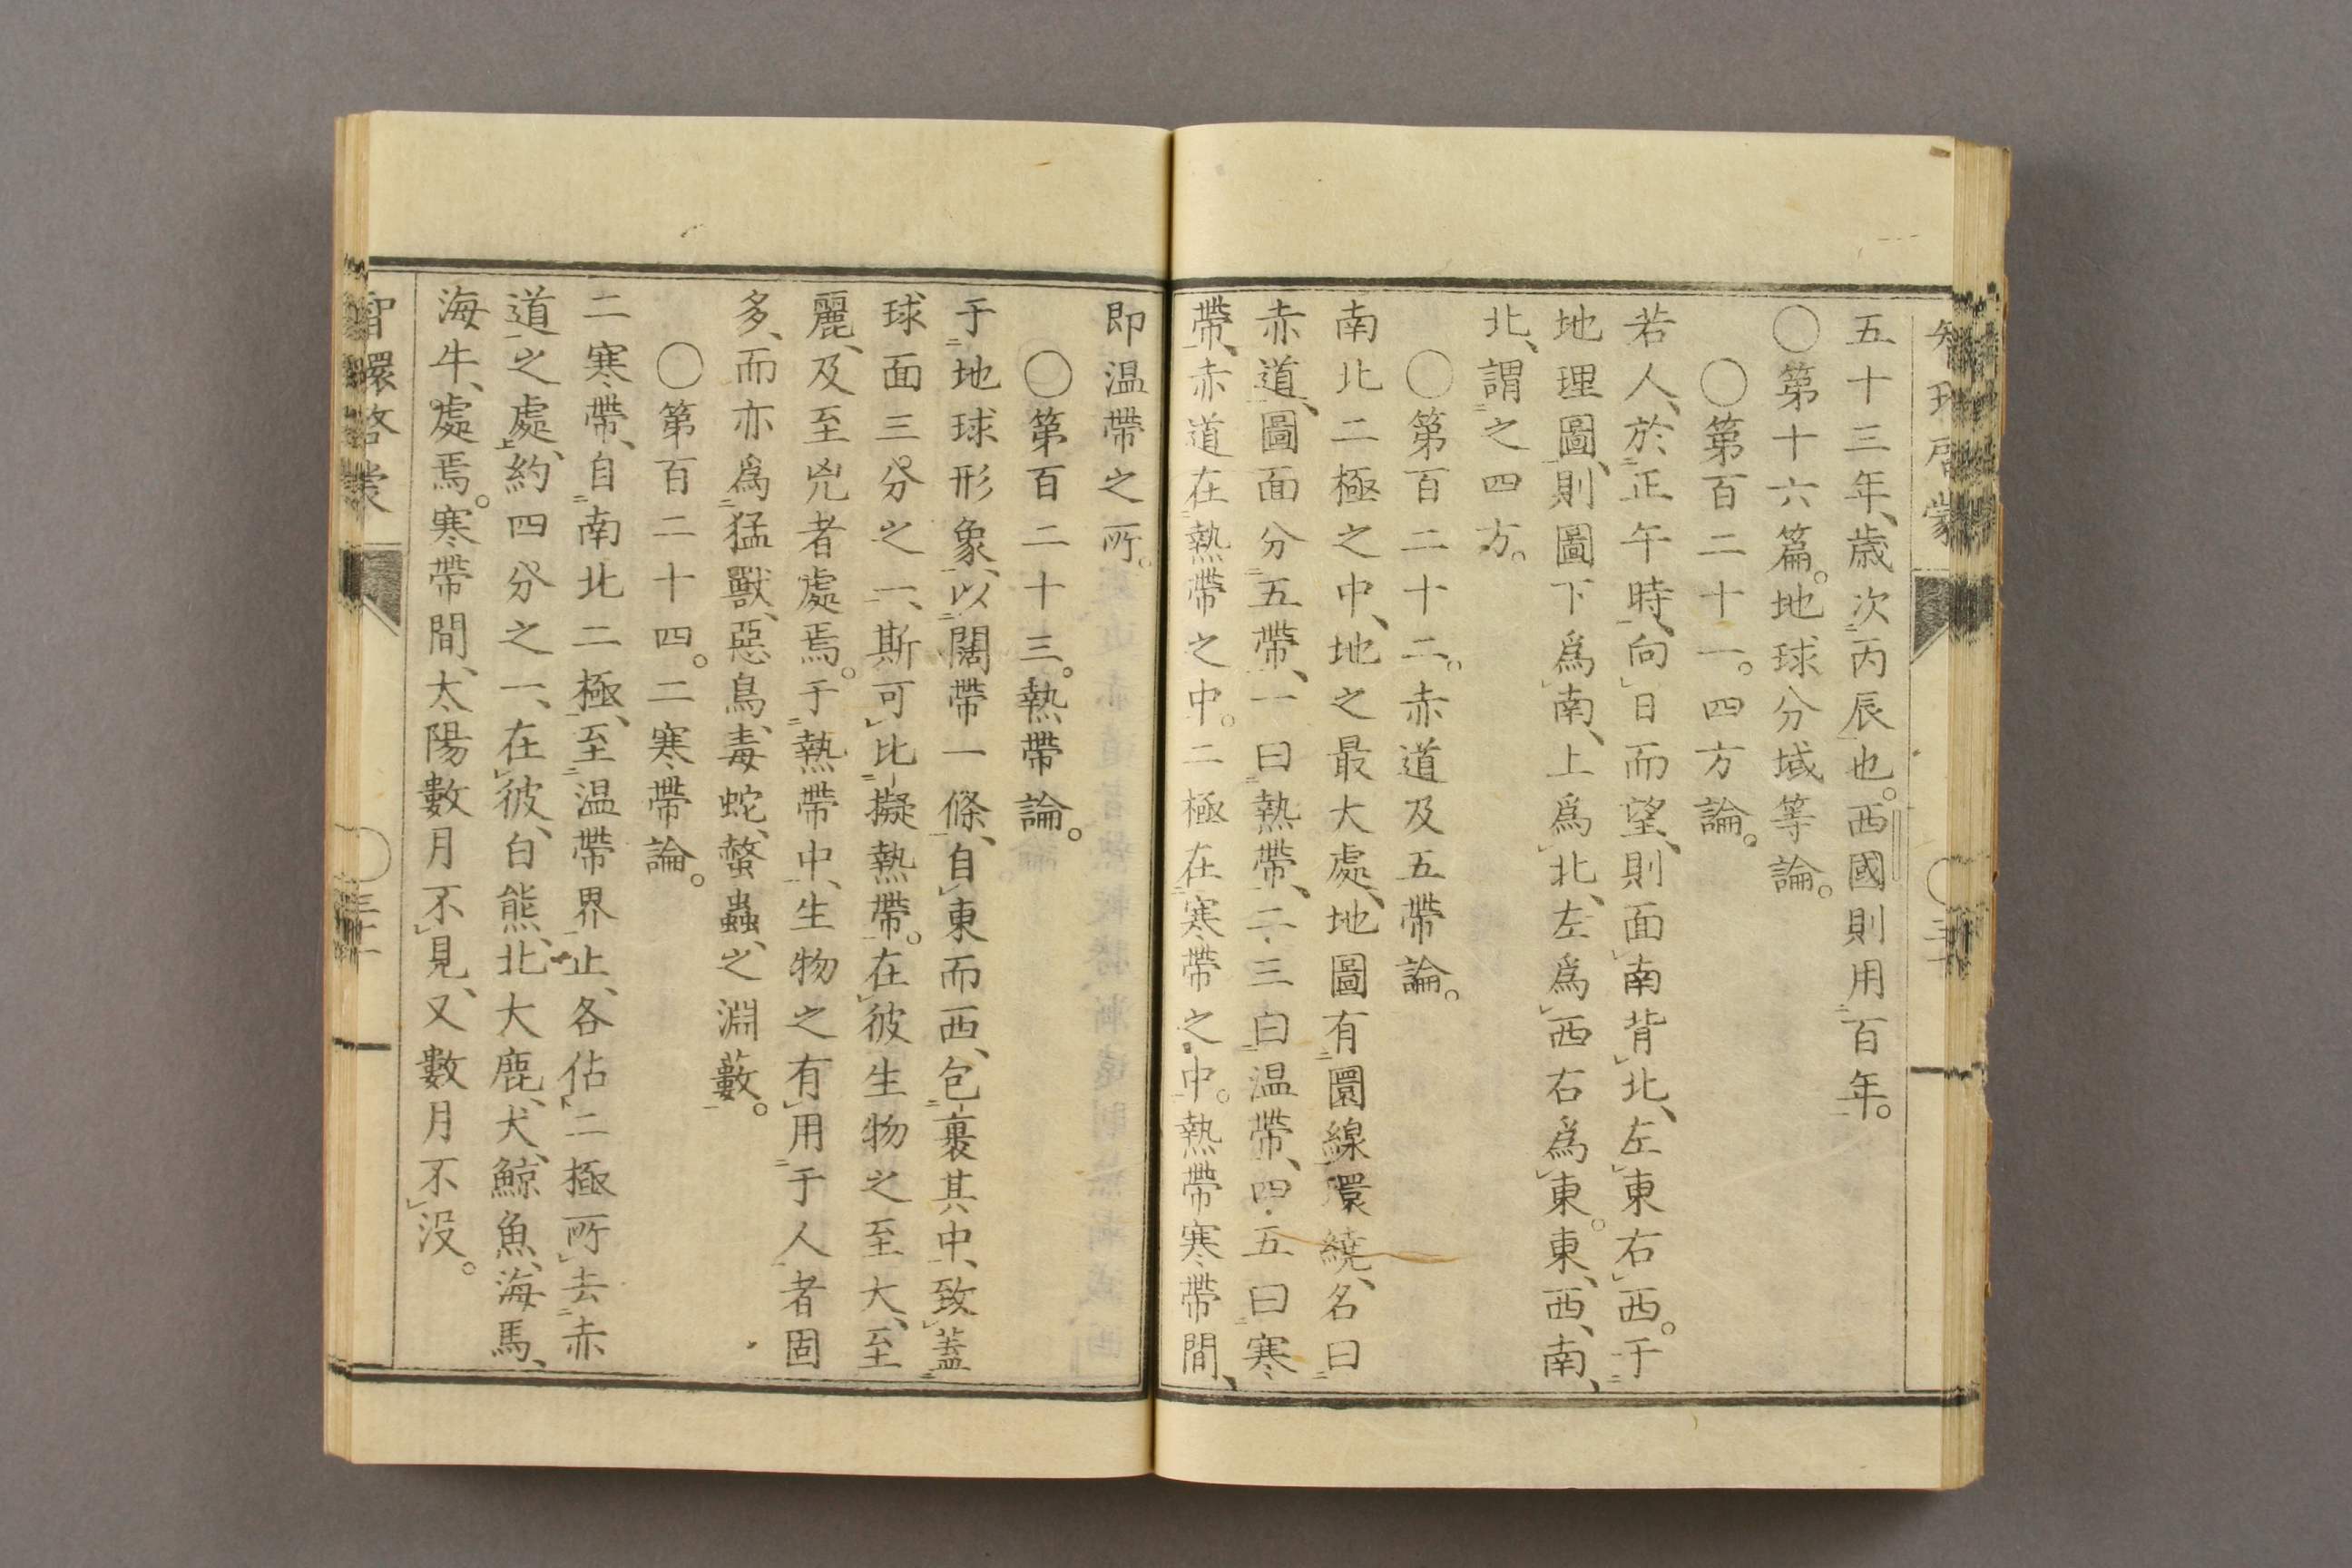 五十三年、歳次丙辰也。西國則用百年。
〇第十六篇。地球分域等論。
〇第百二十一。四方論。
若人、於正午時、向日而望、則面南背北、左東右西。于
地理圖、則圖下爲南、上爲北、左爲西右爲東。東、西、南、
北、謂之四方。
〇第百二十二。赤道及五帶論。
南北二極之中、地之最大處、地圖有圜線環繞、名曰
赤道、圖面分五帶、一曰熱帶、二三曰温帶、四五曰寒
帶、赤道在熱帶之中。二極在寒帶之中。熱帶寒帶間、
即温帶之所。
〇第百二十三。熱帶論。
于地球形象、以闊帶一條、自東而西、包裹其中、致蓋
球面三分之一、斯可比擬熱帶。在彼生物之至大、至
麗、及至兇者處焉。于熱帶中、生物之有用于人者固
多、而亦爲猛獸、惡鳥、毒蛇、螫蟲、之淵藪。
〇第百二十四。二寒帶論。
二寒帶、自南北二極、至温帶界止、各佔二極所去赤
道之處、約四分之一、在彼、白熊、北大鹿、犬、鯨魚、海馬、
海牛、處焉。寒帶間、太陽數月不見、又數月不没。